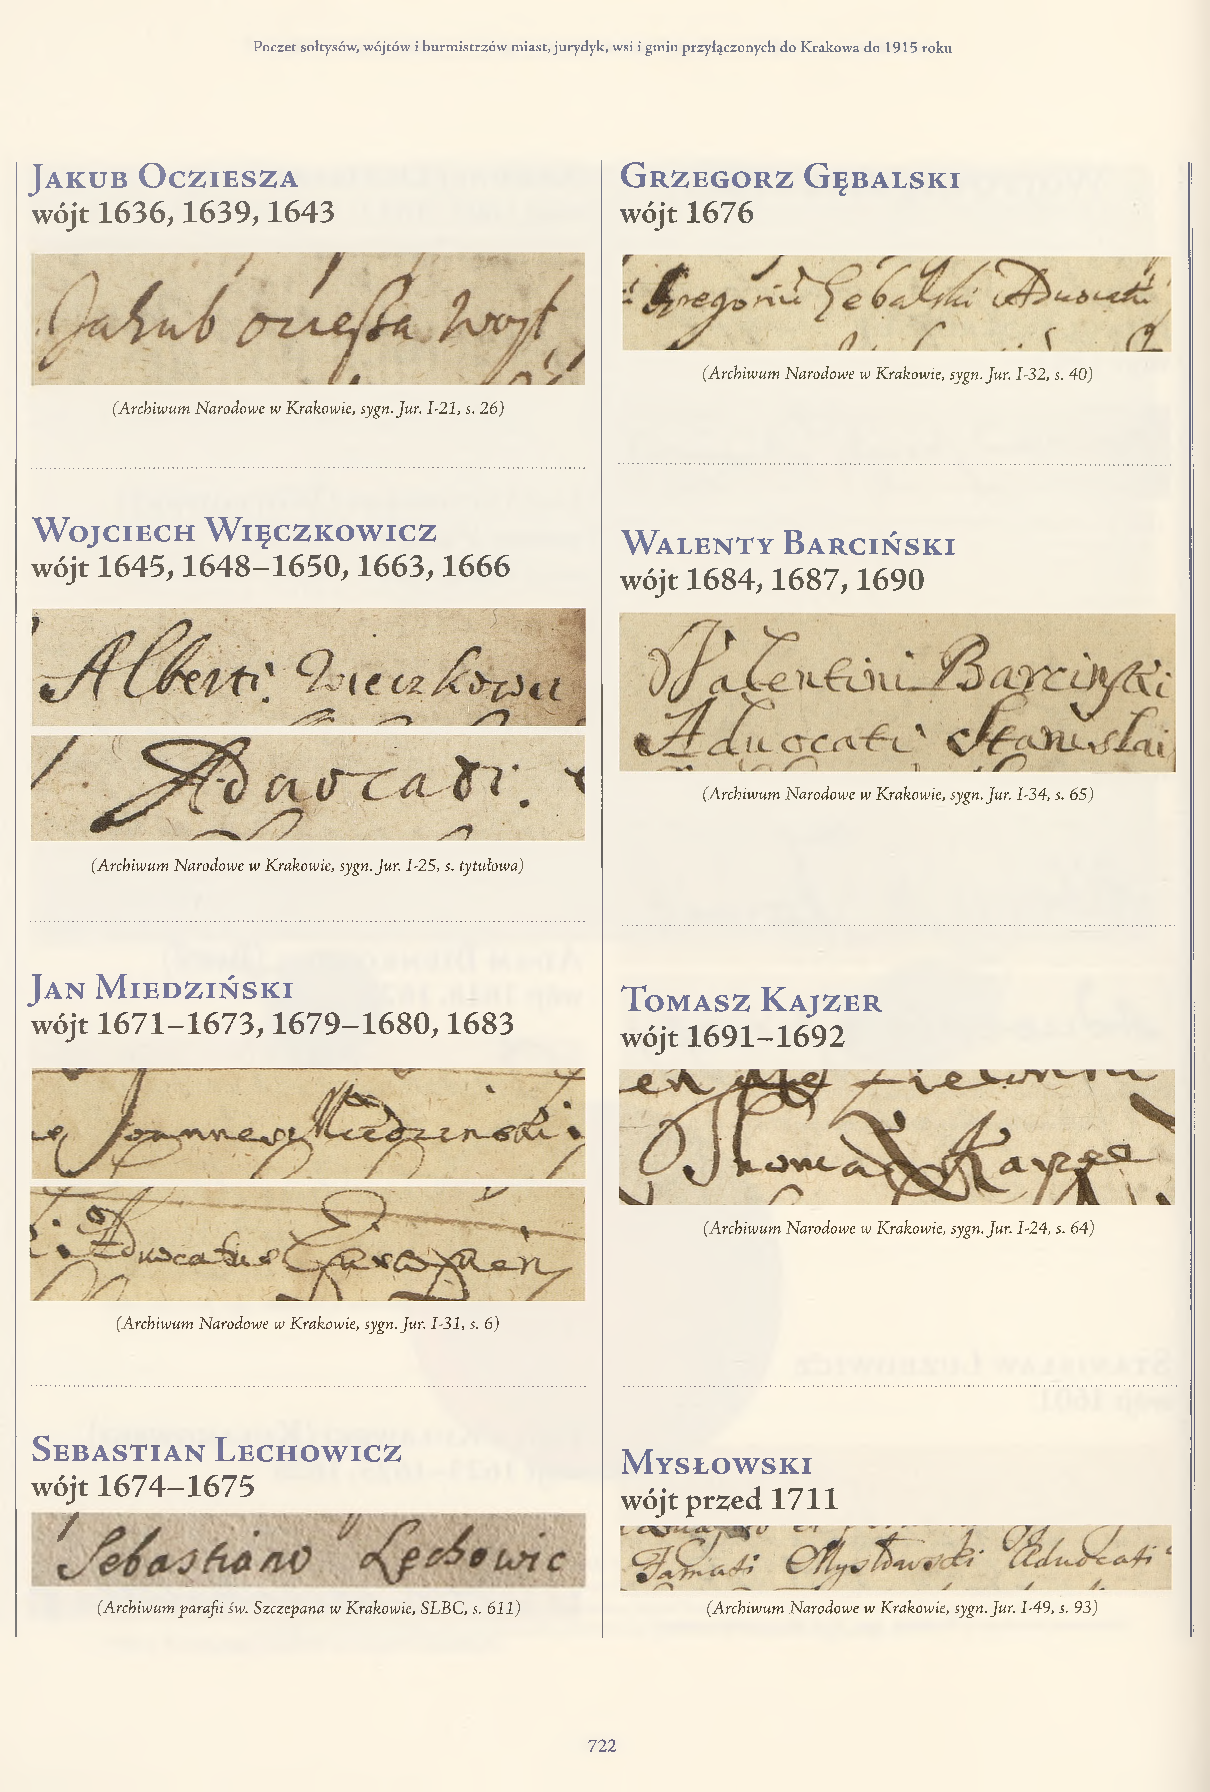 Poczet sołtysów, wójtów i burmistrzów miast, jurydyk, wsi i gmin przyłączonych do Krakowa do 1915 roku
Jakub Ocziesza
wójt 1636, 1639, 1643
Jakub ociesza Woyt
(Archiwum Narodowe w Krakowie, sygn. Jur. I-21, s. 26)
Wojciech Więczkowicz
wójt 1645, 1648–1650, 1663, 1666
Alberti Wieczkowic
Advocati.
(Archiwum Narodowe w Krakowie, sygn. Jur. I-25, s. tytułowa)
Jan Miedziński
wójt 1671–1673, 1679–1680, 1683
Joannes Miedzinski
Advocatus
(Archiwum Narodowe w Krakowie, sygn. Jur. I-31, s. 6)
Sebastian Lechowicz
wójt 1674–1675
Sebastiano Lechowic
(Archiwum parafii św. Szczepana w Krakowie, SLBC, s. 611)
Grzegorz Gębalski
wójt 1676
Gregorius Gębalski Advocatus
(Archiwum Narodowe w Krakowie, sygn. Jur. I-32, s. 40)
Walenty Barciński
wójt 1684, 1687, 1690
Valentini Barcinski
Advocati Stanislai
(Archiwum Narodowe w Krakowie, sygn. Jur. I-34, s. 65)
Tomasz Kajzer
wójt 1691–1692
Thomas Kayze
(Archiwum Narodowe w Krakowie, sygn. Jur. I-24, s. 64)
Mysłowski
wójt przed 1711
Famati Mysłowski Advocati
(Archiwum Narodowe w Krakowie, sygn. Jur. I-49, s. 93)
722